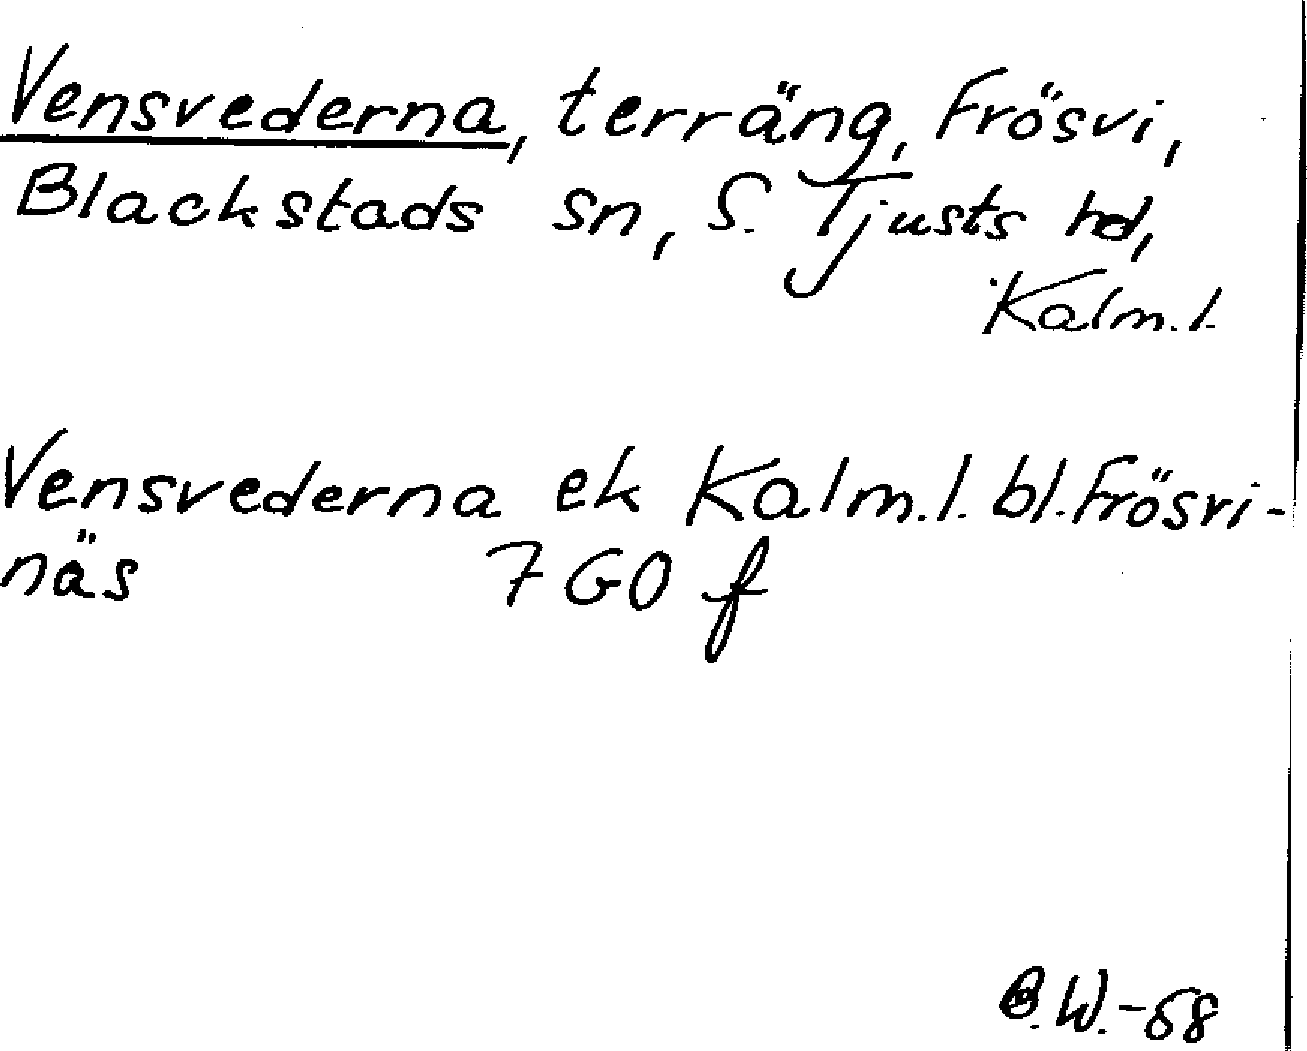 Vensvederna, terräng, Frösvi,
Blackstads sn, S. Tjusts hd,
Kalm.l.
Vensvederna ek Kalm.l. bl. Frösvi-
näs 7 GO f
B.W.-68